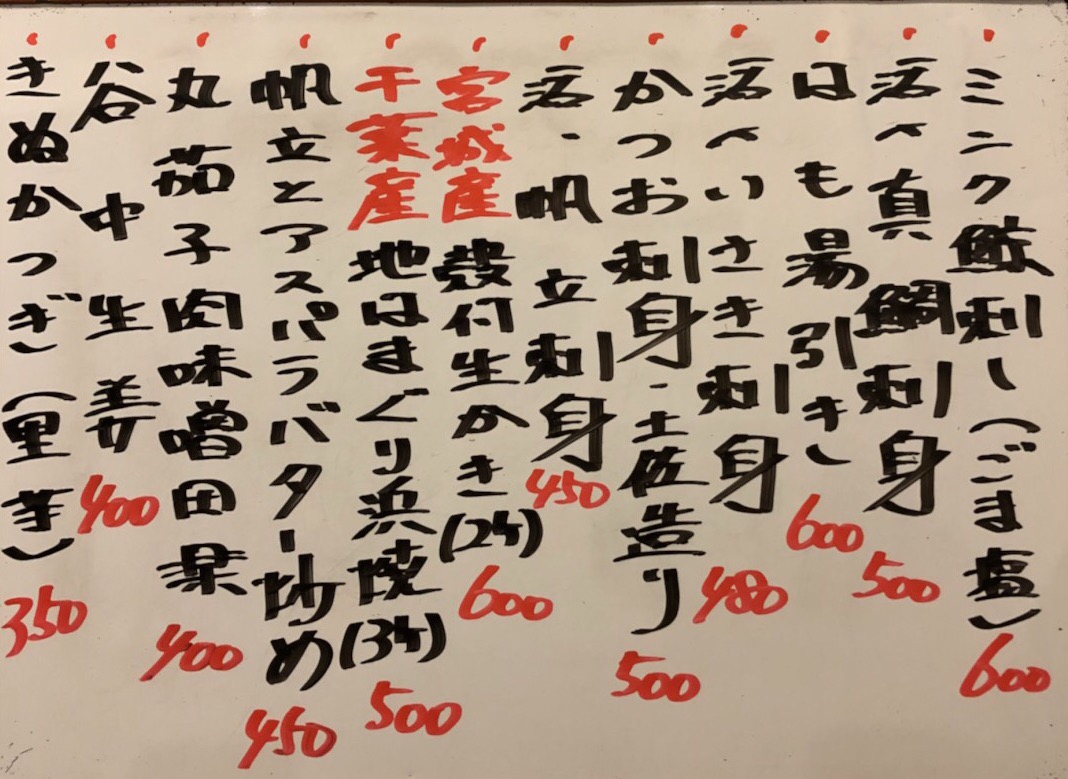 ミンク鯨刺し(ごま塩) 600
活〆真鯛刺身 500
はも湯引き 600
活〆いさき刺身 480
かつお刺身・土佐造り 500
活・帆立刺身 450
宮城産 殻付生かき(2ケ) 600
千葉産 地はまぐり浜焼(3ケ) 500
帆立とアスパラバター炒め 450
丸茄子肉味噌田楽 400
谷中生姜 400
きぬかつぎ(里芋) 350